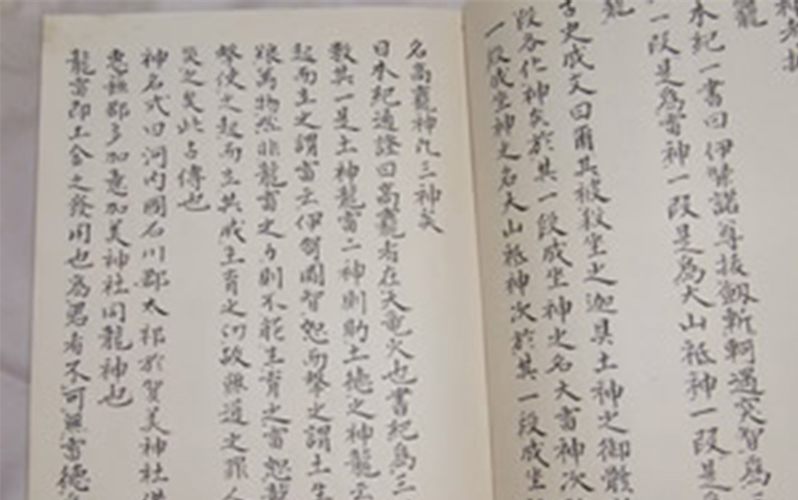 神名抔
龗
木紀一書曰伊弉諾尊拔劔斬軻遇突智爲
一段是爲雷神一段是爲大山祇神一段是
龍
古史成文曰爾其被殺坐之迦具土神之御骸
段各化神矣於其一段成坐神之名大雷神次
一段成坐神之名大山祇神次於其一段成坐
名高龗神凡三神矣
日本紀通證曰高龗者在天竜火也書紀爲三
数其一是土神龍雷二神則助土德之神龍云
起而主之謂雷云伊弉
萬物然非龍雷之力則不能生育之雷
擊使之起而立共成生育之功故無道之罪人
災之矣此古傳也
神名式曰河内國石川郡大祁於賀美神社
惠
郡多加意加美神社同龍神也
龍雷即土金之發用也爲君者不可無雷德